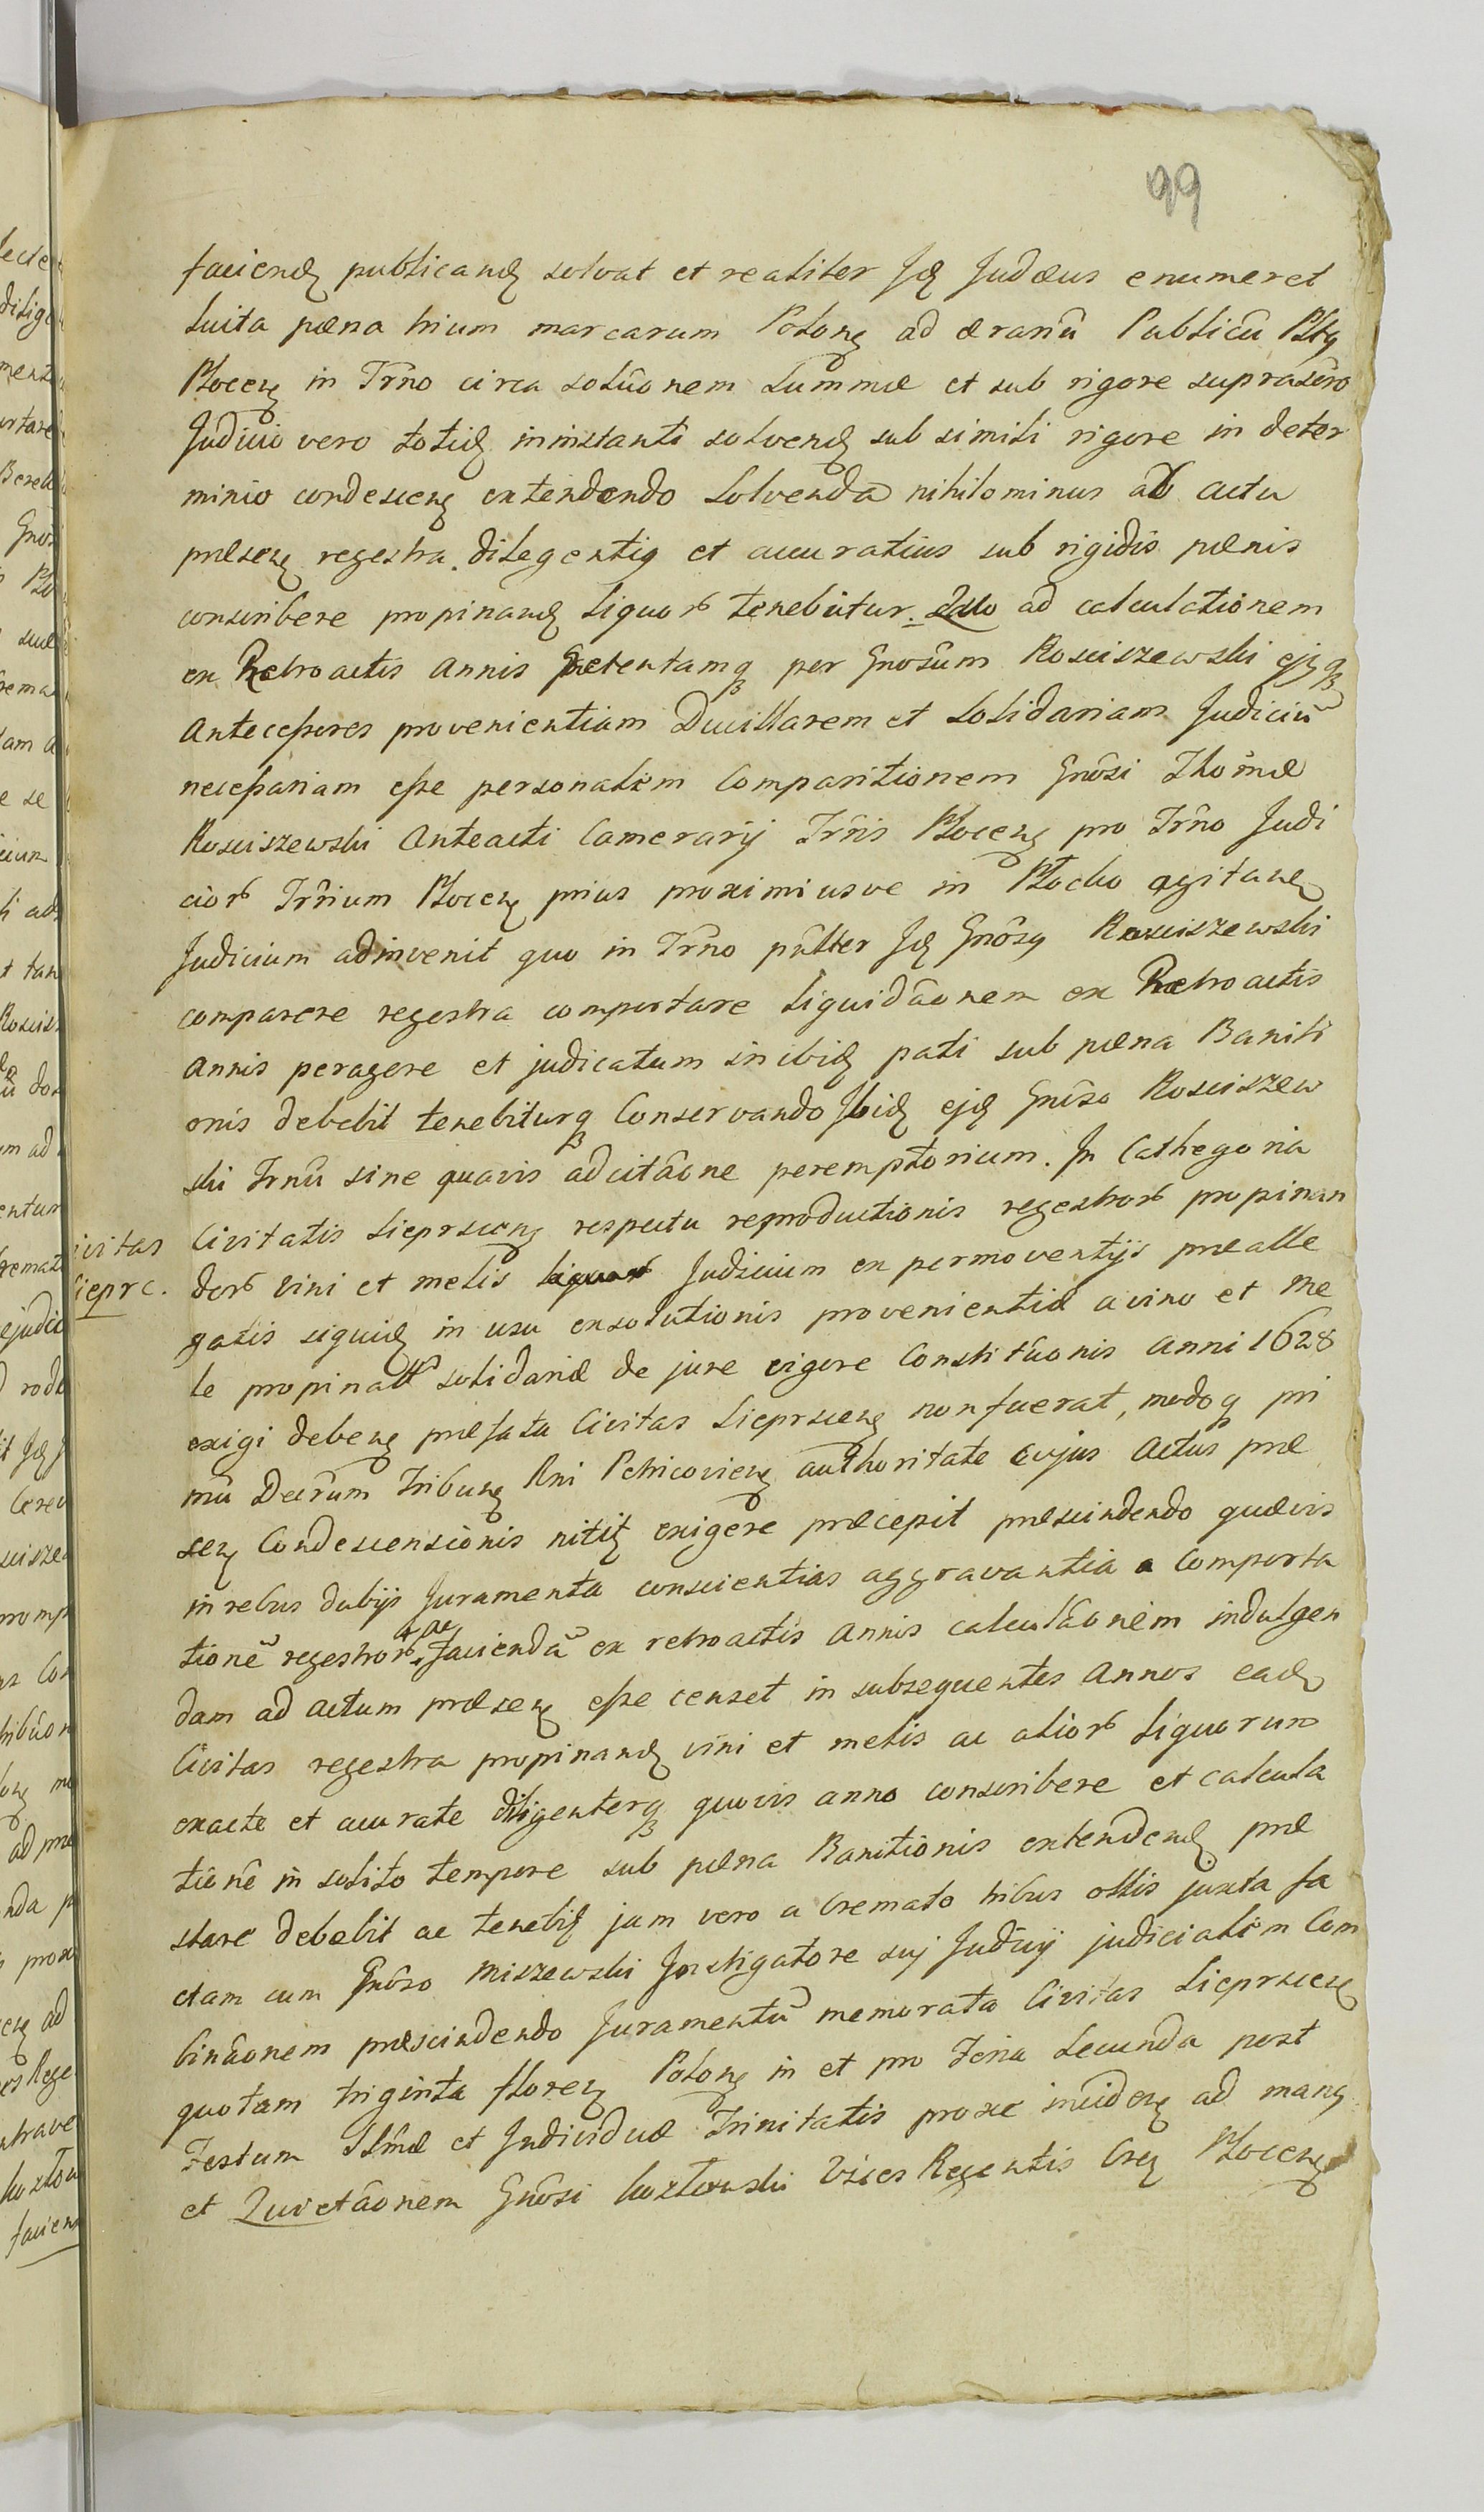 99
faciend publicand solvat et realiter Id Judæus enumeret
Luita pæna trium marcarum Polon ad ærariũ Publicũ Pltg
Plocen in Trño circa solũonem Summæ et sub rigore suprascrõ
Judicio vero totid ininstanti solvend sub simili rigore in deter
minio condescen extendendo Solvenda nihilominus ab actu
præsen regestra diligentig et accuratius sub rigidis pænis
conscribere propinand liquor tenebitur. Quo ad calculationem
ex Retroactis Annis Retentamq per Gnosum Rosciszewski ejq
Antecessores provenientiam Ducillarem et Solidariam Judiciũ
necessariam esse personalem Comparitionem Gnõsi Thomæ
Rosciszewski Anteacti Camerarij Trñis Plocen pro Trño Judi
cior Trñium Plocen prius proximiusve in Plocko agitan
Judicium adinvenit quo in Trño pãlter Id Gnõsq Rosciszewski
comparere regestra comportare Liquidãonem ex Retroactis
Annis peragere et judicatum inibid pati sub pæna Baniti
onis debebit tenebiturq Conservando Ibid ejd Gnõso Rosciszew
ski Trnũ sine quavis adcitãone peremptorium. In Cathegoria
ivitas
Sieprc.
Civitatis Sieprscen respectu reproductionis regestror propinan
dor Vini et melis liquor Judicium ex permoventijs præalle
gatis siquid in usu exsolutionis provenientiæ a vino et me
le propinatt solidariæ de jure vigore Constitũonis Anni 1628
exigi deben præfata Civitas Sieprscen non fuerat, modoq pri
mũ Decrũm Tribun Rni Petricovien authoritate cujus Actus præ
sen Condescensionis nitit exigere præcepit præscindendo quævis
in rebus dubijs Juramenta conscientias aggravantia a Comporta
tionẽ regestror ac faciendã ex retroactis Annis calculãonem indulgen
dam ad actum præsen esse censet in subsequentes Annos ead
Civitas regestra propinand vini et melis ac alior liquorum
exacte et accurate diligenterq quovis anno conscribere et calcula
tionẽ in solito tempore sub pæna Banitionis extendend præ
stare debebit ac tenebit jam vero a Cremato tribus ollis juxta fa
ctam cum Gnõso Miszewski Instigatore suj Judicij judicialem Com
binãonem præscindendo Juramentũ memorata Civitas Sieprscen
quotam triginta floren Polon in et pro Feria Secunda post
Festum Ssmæ et Individuæ Trinitatis proxe inciden ad manq
et Quietãonem Gnõsi Koztowski Vices Regentis Crg Plocen